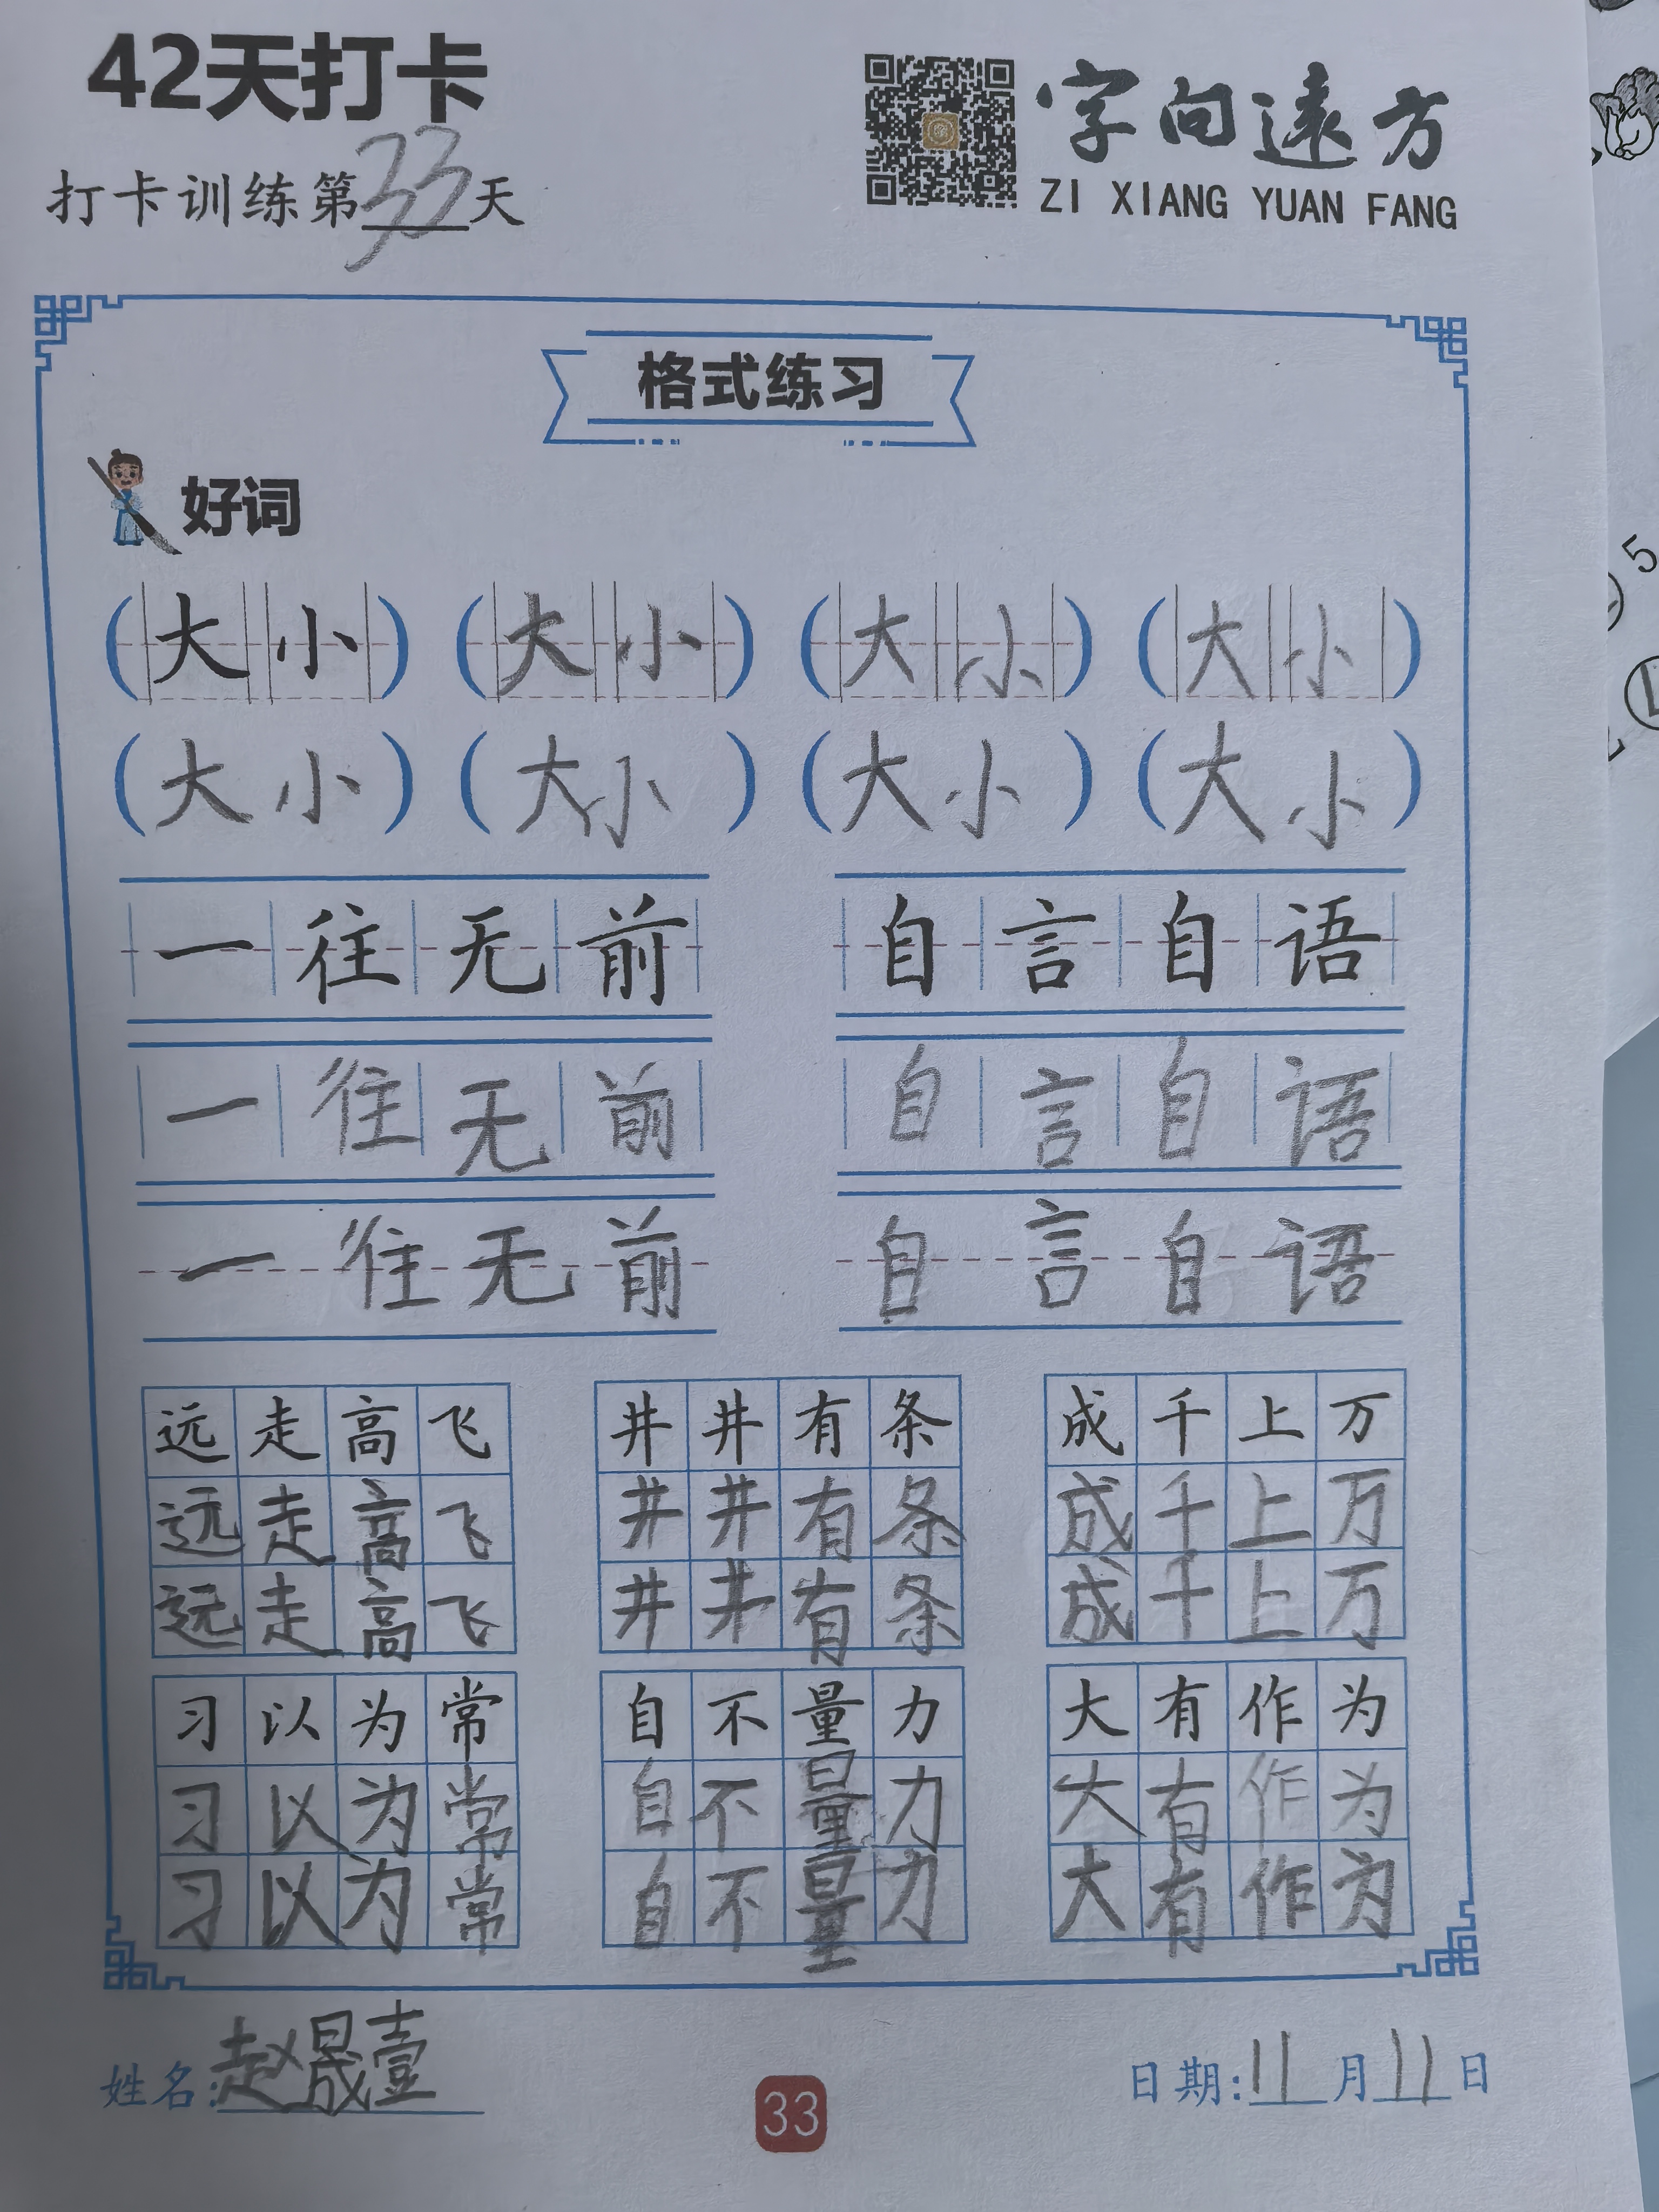 42天打卡
字向遠方
ZI XIANG YUAN FANG
打卡训练第33天
格式练习
好词
(大小) (大小) (大小) (大小)
(大小) (大小) (大小) (大小)
一往无前 自言自语
一往无前 自言自语
一往无前 自言自语
远走高飞 井井有条 成千上万
远走高飞 井井有条 成千上万
远走高飞 井井有条 成千上万
习以为常 自不量力 大有作为
习以为常 自不量力 大有作为
习以为常 自不量力 大有作为
姓名:赵晟壹 日期:11月11日
33
5